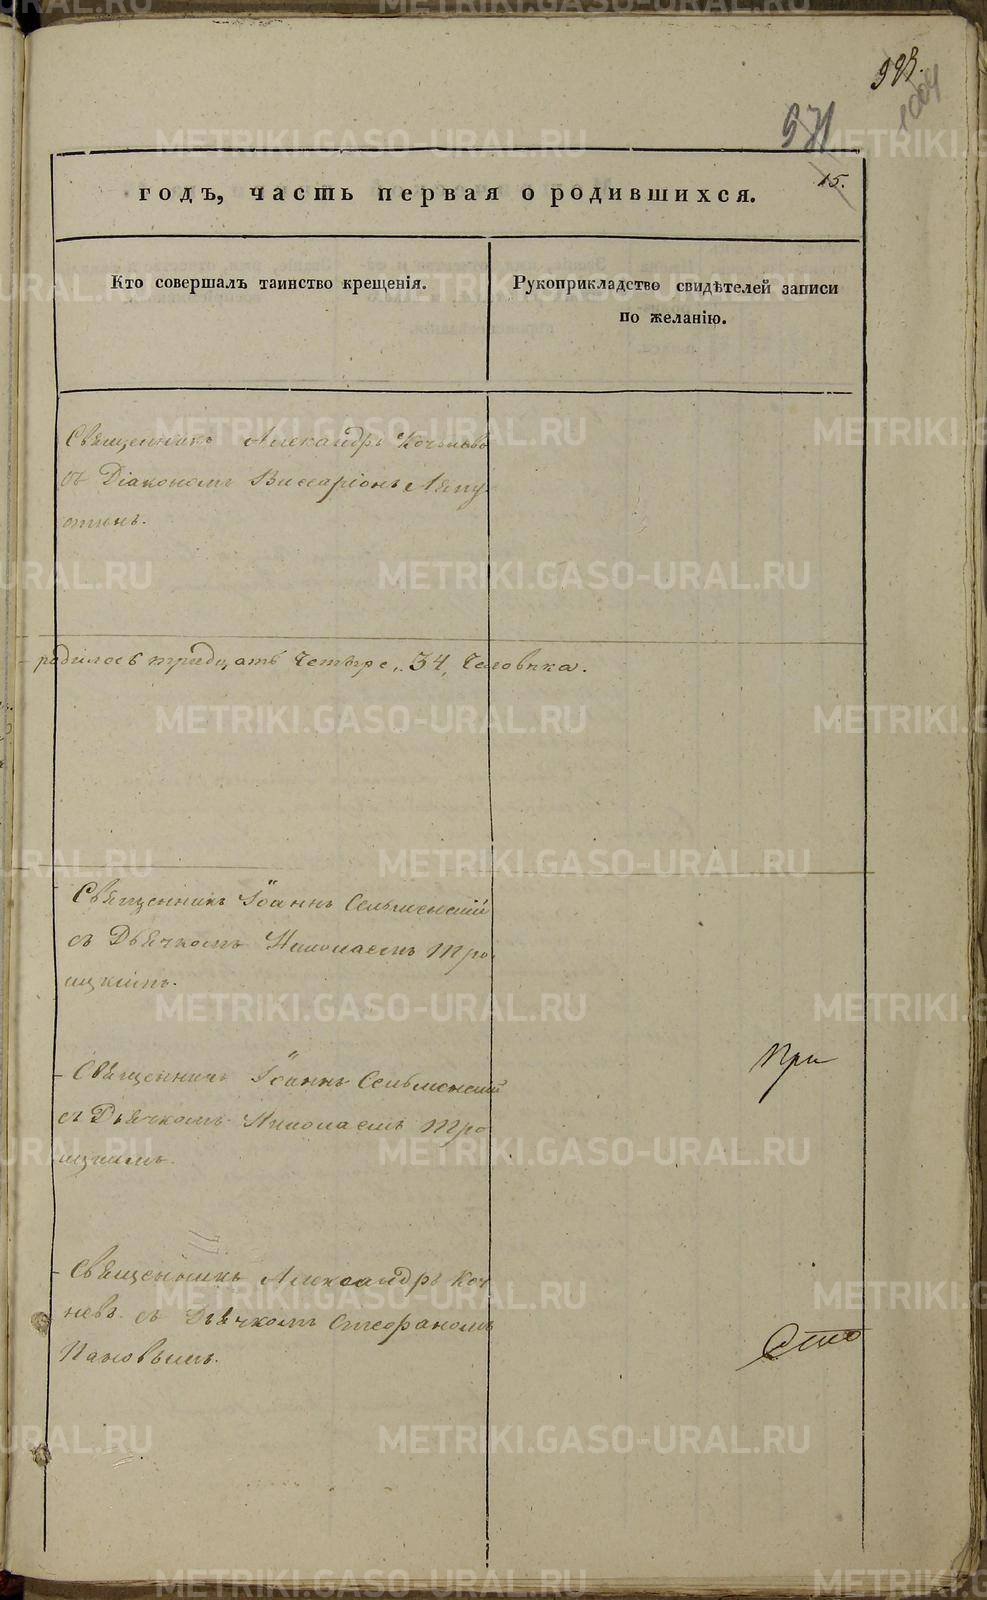 1004
971
15.
годъ, часть первая о родившихся.
Кто совершалъ таинство крещенія.
Рукоприкладство свидѣтелей записи
по желанію.
Священникъ Александръ Кочневъ
съ Діакономъ Виссаріонъ Ляпу
стинъ.
родилось тридцать четыре, 34, человѣка.
Священникъ Іоаннъ Сельменскій
съ Дьячкомъ Николаемъ Тро
ицкимъ.
Священникъ Іоаннъ Сельменскій
съ Дьячкомъ Николаемъ Тро
ицкимъ.
При
Священникъ Александръ Коч
невъ съ Дьячкомъ Стефаномъ
Пановымъ.
METRIKI.GASO-URAL.RU